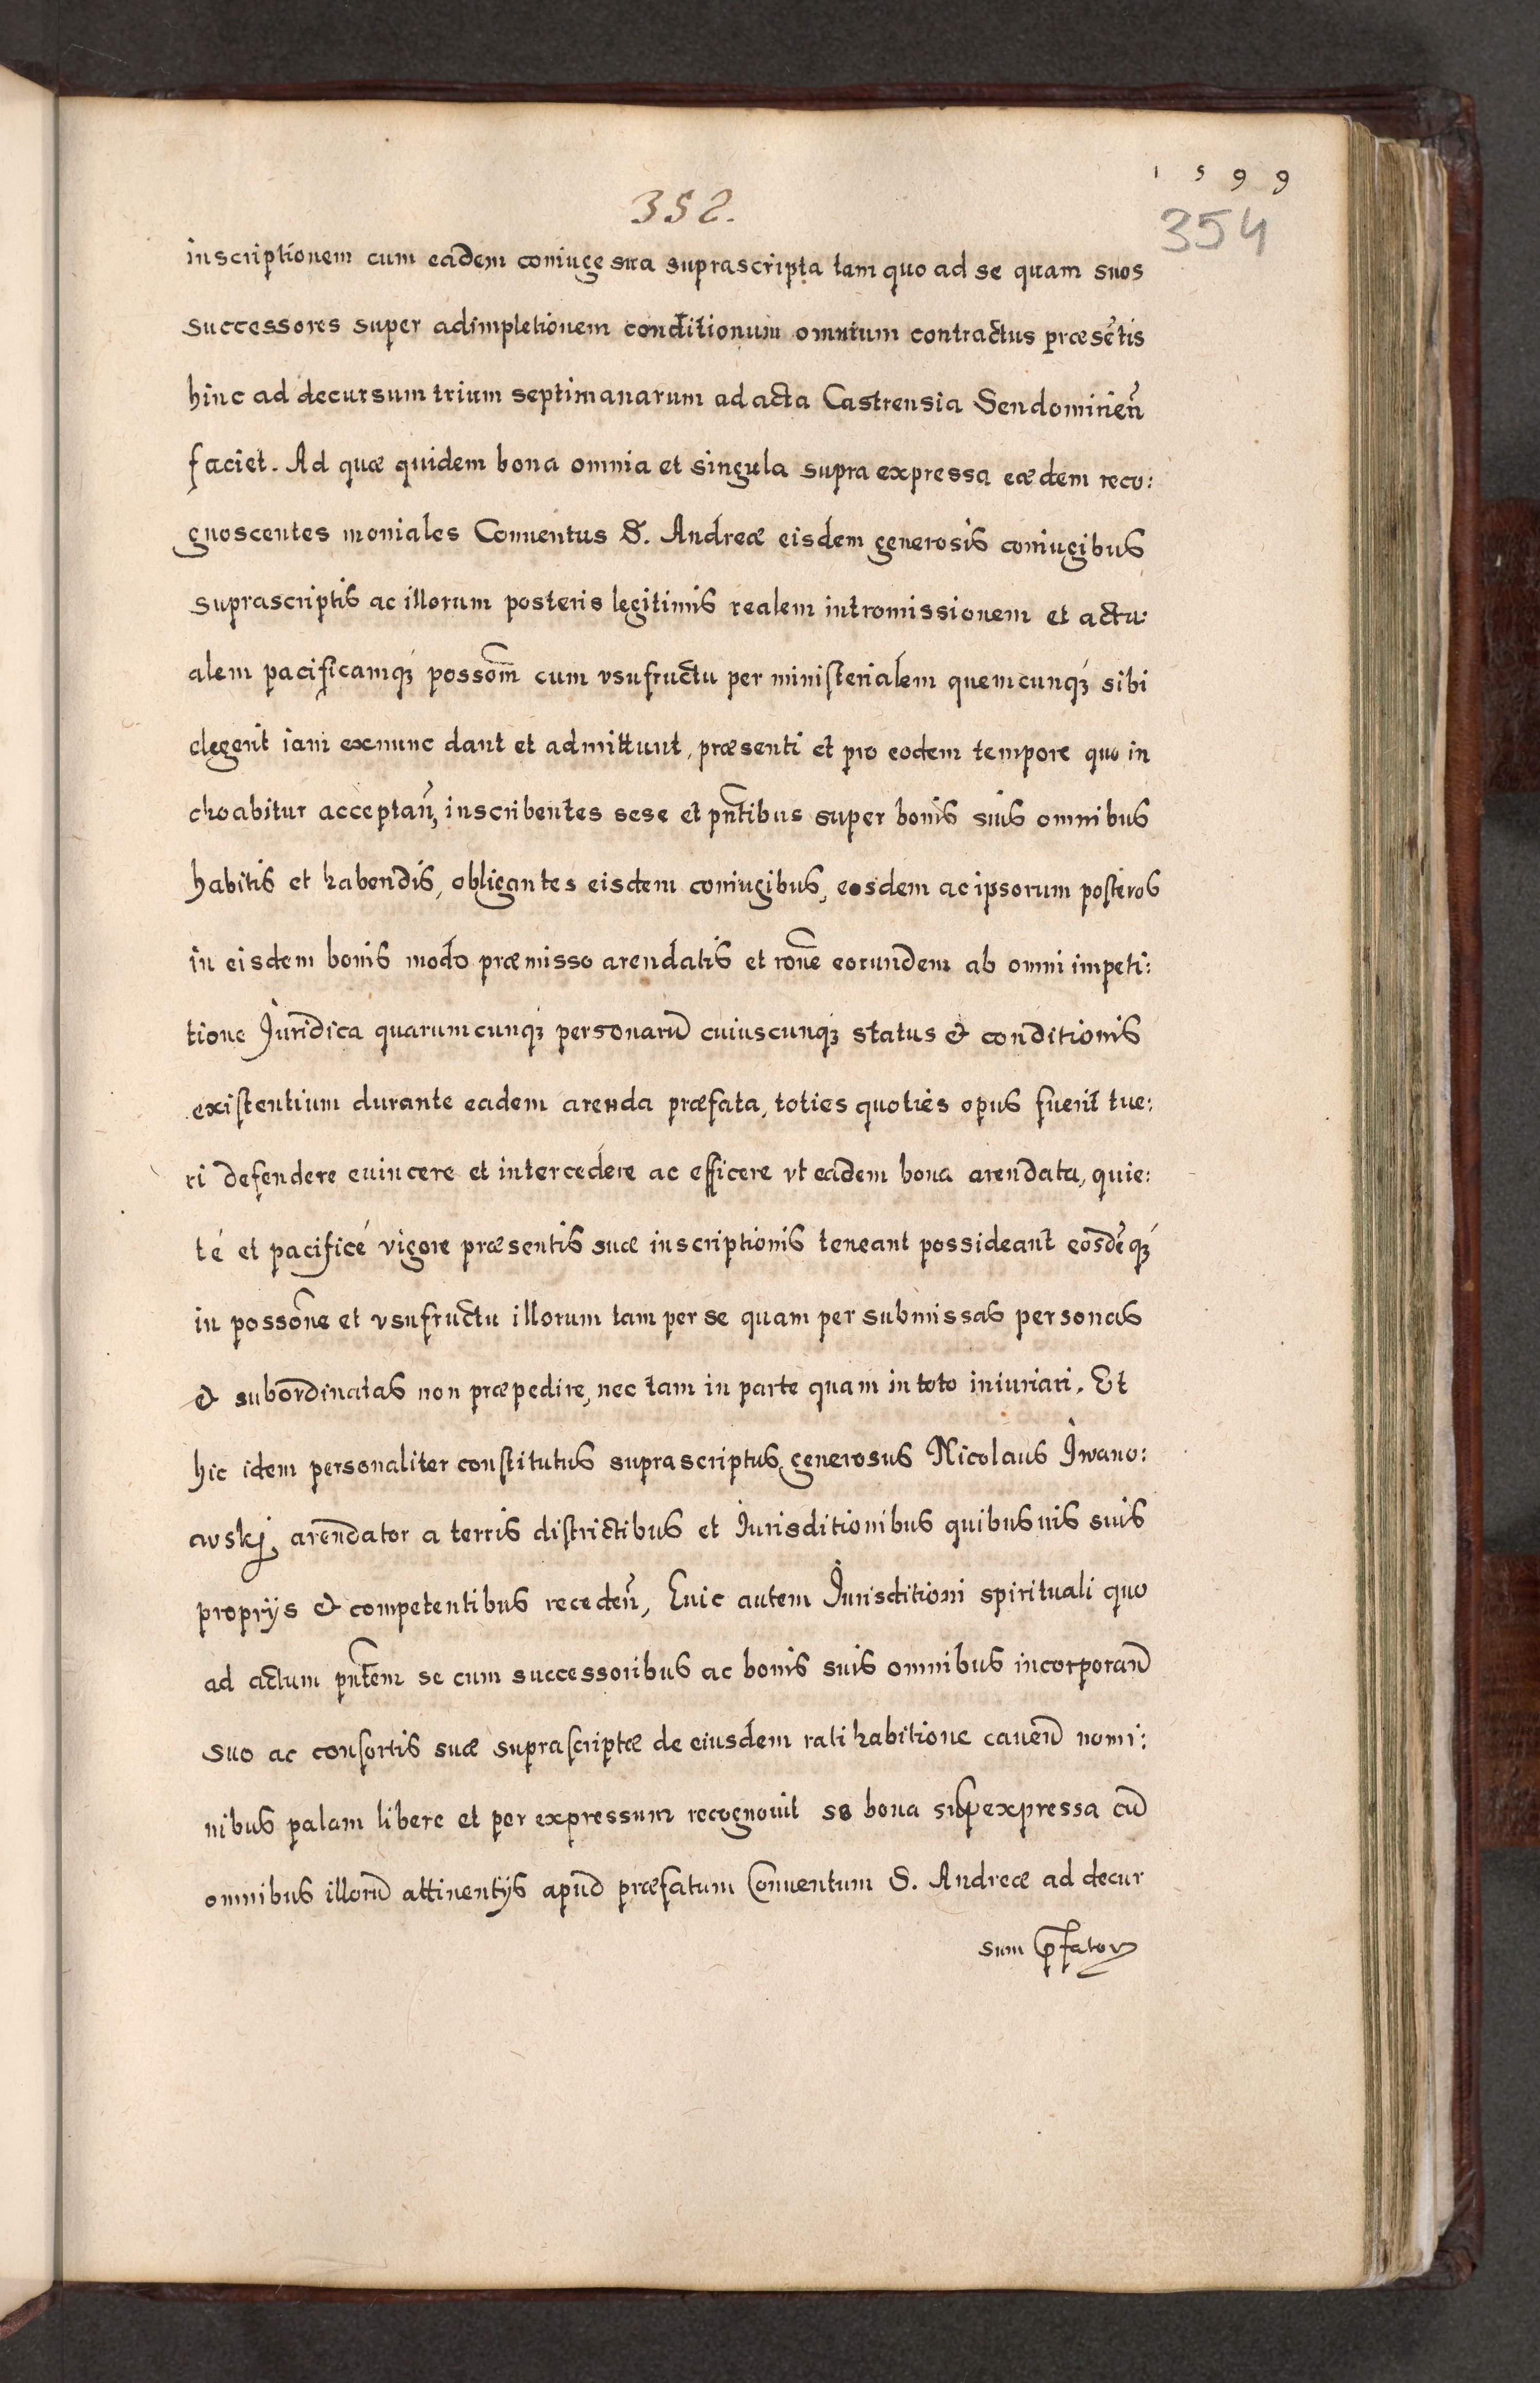 1599
352.
354
inscriptionem cum eadem coniuge sua suprascripta tam quo ad se quam suos
successores super adimpletionem conditionum omnium contractus præsẽtis
hinc ad decursum trium septimanarum ad acta Castrensia Sendomirieñ
faciet. Ad quæ quidem bona omnia et singula supra expressa eædem reco:
gnoscentes moniales Conuentus S. Andreæ eisdem generosis coniugibus
suprascriptis ac illorum posteris legitimis realem intromissionem et actu:
alem pacificamq́ꝫ possom̃ cum vsufructu per ministerialem quemcunq́ꝫ sibi
elegerit iam exnunc dant et admittunt, præsenti et pro eodem tempore quo in
choabitur acceptañ, inscribentes sese et pñtibus super bonis suis omnibus
habitis et habendis, obligantes eisdem coniugibus, eosdem ac ipsorum posteros
in eisdem bonis modo præmisso arendatis et rõne eorundem ab omni impeti:
tione Juridica quarumcunqꝫ personarũ cuiuscunqꝫ status & conditionis
existentium durante eadem arenda præfata, toties quoties opus fuerit tue:
ri defendere euincere et intercedere ac efficere vt eadem bona arendata, quie:
té et pacificé vigore præsentis suæ inscriptionis teneant possideant eosdẽq́ꝫ
in possõne et vsufructu illorum tam per se quam per submissas personas
& subordinatas non præpedire, nec tam in parte quam in toto iniuriari. Et
hic idem personaliter constitutus suprascriptus generosus Nicolaus Jwano:
wskj, arendator a terris districtibus et Jurisditionibus quibusuis suis
proprijs & competentibus recedeñ, Huic autem Jurisditioni spirituali quo
ad actum pñtem se cum successoribus ac bonis suis omnibus incorporañ
suo ac consortis suæ suprascriptæ de eiusdem rati habitione caueñ nomi:
nibus palam libere et per expressum recognouit se bona supexpressa cũ
omnibus illorũ attinentijs apud præfatum Conuentum S. Andreæ ad decur
sum p̃fatoꝝ